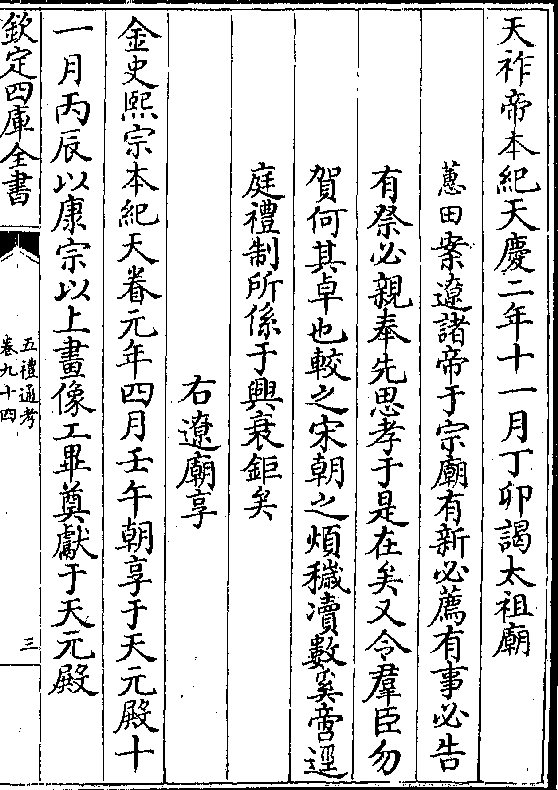 天祚帝本紀天慶二年十一月丁卯謁太祖廟
蕙田案遼諸帝于宗廟有新必薦有事必告
有祭必親奉先思孝于是在矣又令羣臣勿
賀何其卓也較之宋朝之煩穢凟數奚啻逕
庭禮制所係于興衰鉅矣
右遼廟享
金史熙宗本紀天眷元年四月壬午朝享于天元殿十
一月丙辰以康宗以上畫像工畢奠獻于天元殿
欽定四庫全書
五禮通考
卷九十四
三